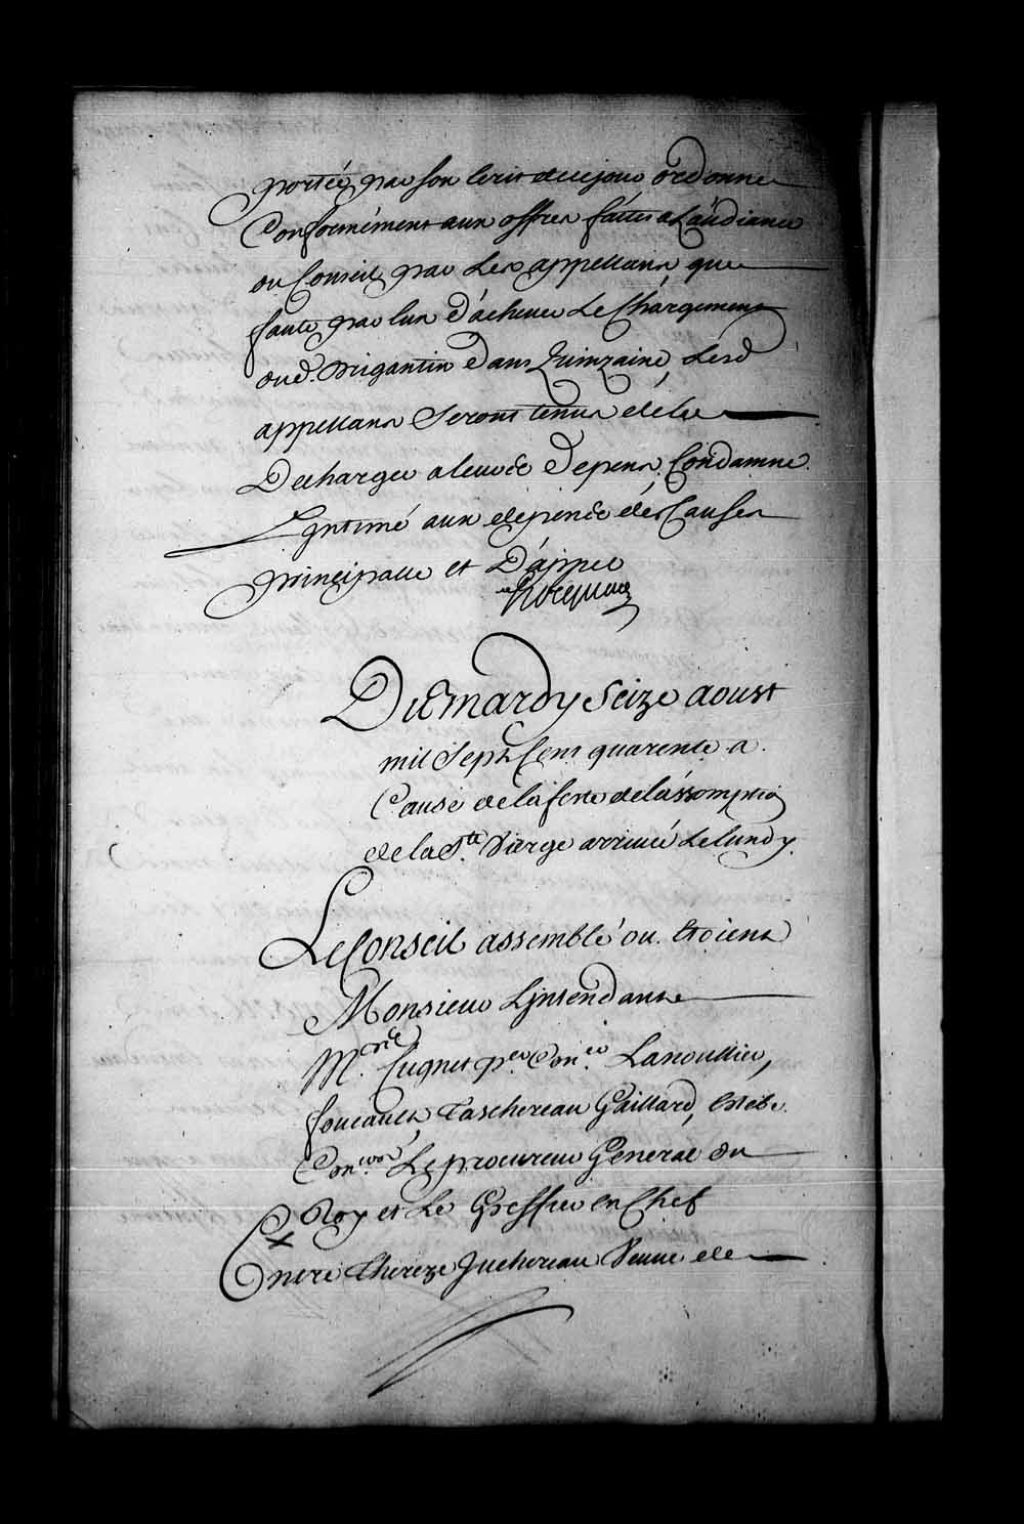 portée par son Ecrit de ce jour ordonne
Conformément aux offres faites a Laudiance
du Conseil par Les appellans que
faute par lux d'achever Le Chargement
dud. Brigantin dans Quinzaine, Lesd
appellans Seront tenus de le
Decharger a leurs Depens, Condamne
Lintimé aux depends des Causes
principalle et D'appel
Hocquart
Du mardy Seize aoust
mil Sept Cent quarente a
Cause de la feste de lassomption
de la Ste. Vierge arrivée Le lundy.
Le Conseil assemblé ou Etoient
Monsieur Lintendant
Mrs. Cugnet per. Coner. Lanoullier,
foucault, Taschereau Gaillard, Estebe
Coners. Le procureur General du
Roy et Le Greffier en Chef
Entre Thereze Juchereau Veuve de